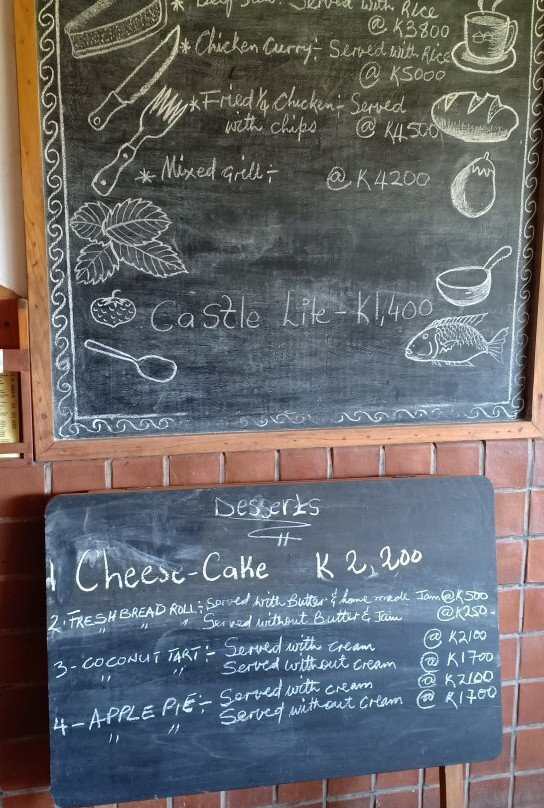 * Beef Stew:- Served with Rice
@ K3800
* Chicken Curry:- Served with Rice
@ K5000
* Fried ¼ Chicken:- Served
with chips @ K4,500
* Mixed grill:- @ K4200
Castle Lite - K1,400
Desserts
1 Cheese-Cake K 2,200
2. FRESH BREAD ROLL:- Served with Butter & home made Jam @ K500
" " " Served without Butter & Jam @ K250-
3- COCONUT TART:- Served with cream @ K2100
" " Served without cream @ K1700
4- APPLE PIE:- Served with cream @ K2100
" " Served without cream @ K1700